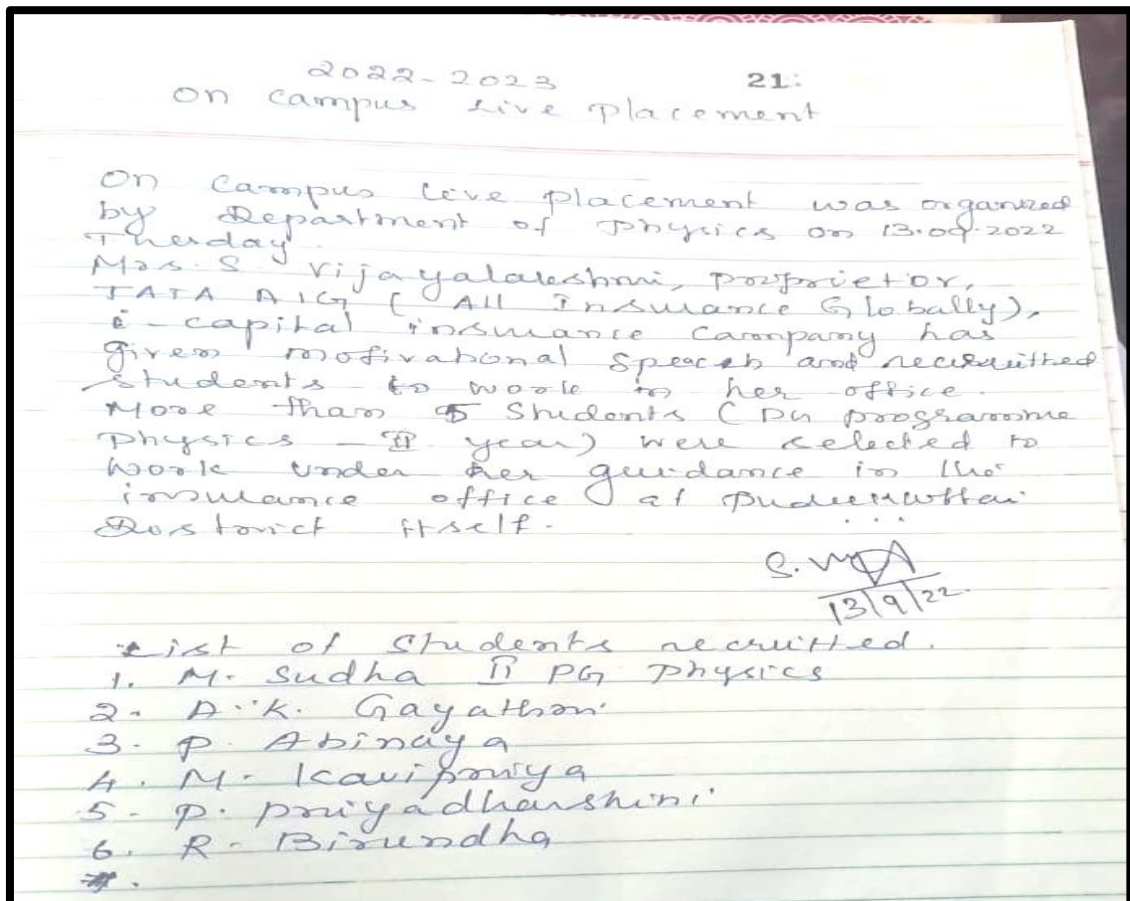 2022-2023 21:
On campus Live Placement
On campus Live Placement was organized
by Department of Physics on 13.09.2022
Thesday.
Mrs. S. Vijayalakshmi, Proprietor,
TATA AIG ( All Insurance Globally),
e-capital insurance Company has
given motivational Speech and recruitted
students to work in her office.
More than 5 Students (PG programme
Physics - II year) were selected to
work under her guidance in the
insurance office at Pudukkottai
District itself.
13/9/22.
List of Students recruitted.
1. M. Sudha II PG Physics
2. A.K. Gayathri
3. P. Abinaya
4. M. Kavipriya
5. P. Priyadharshini
6. R. Birundha